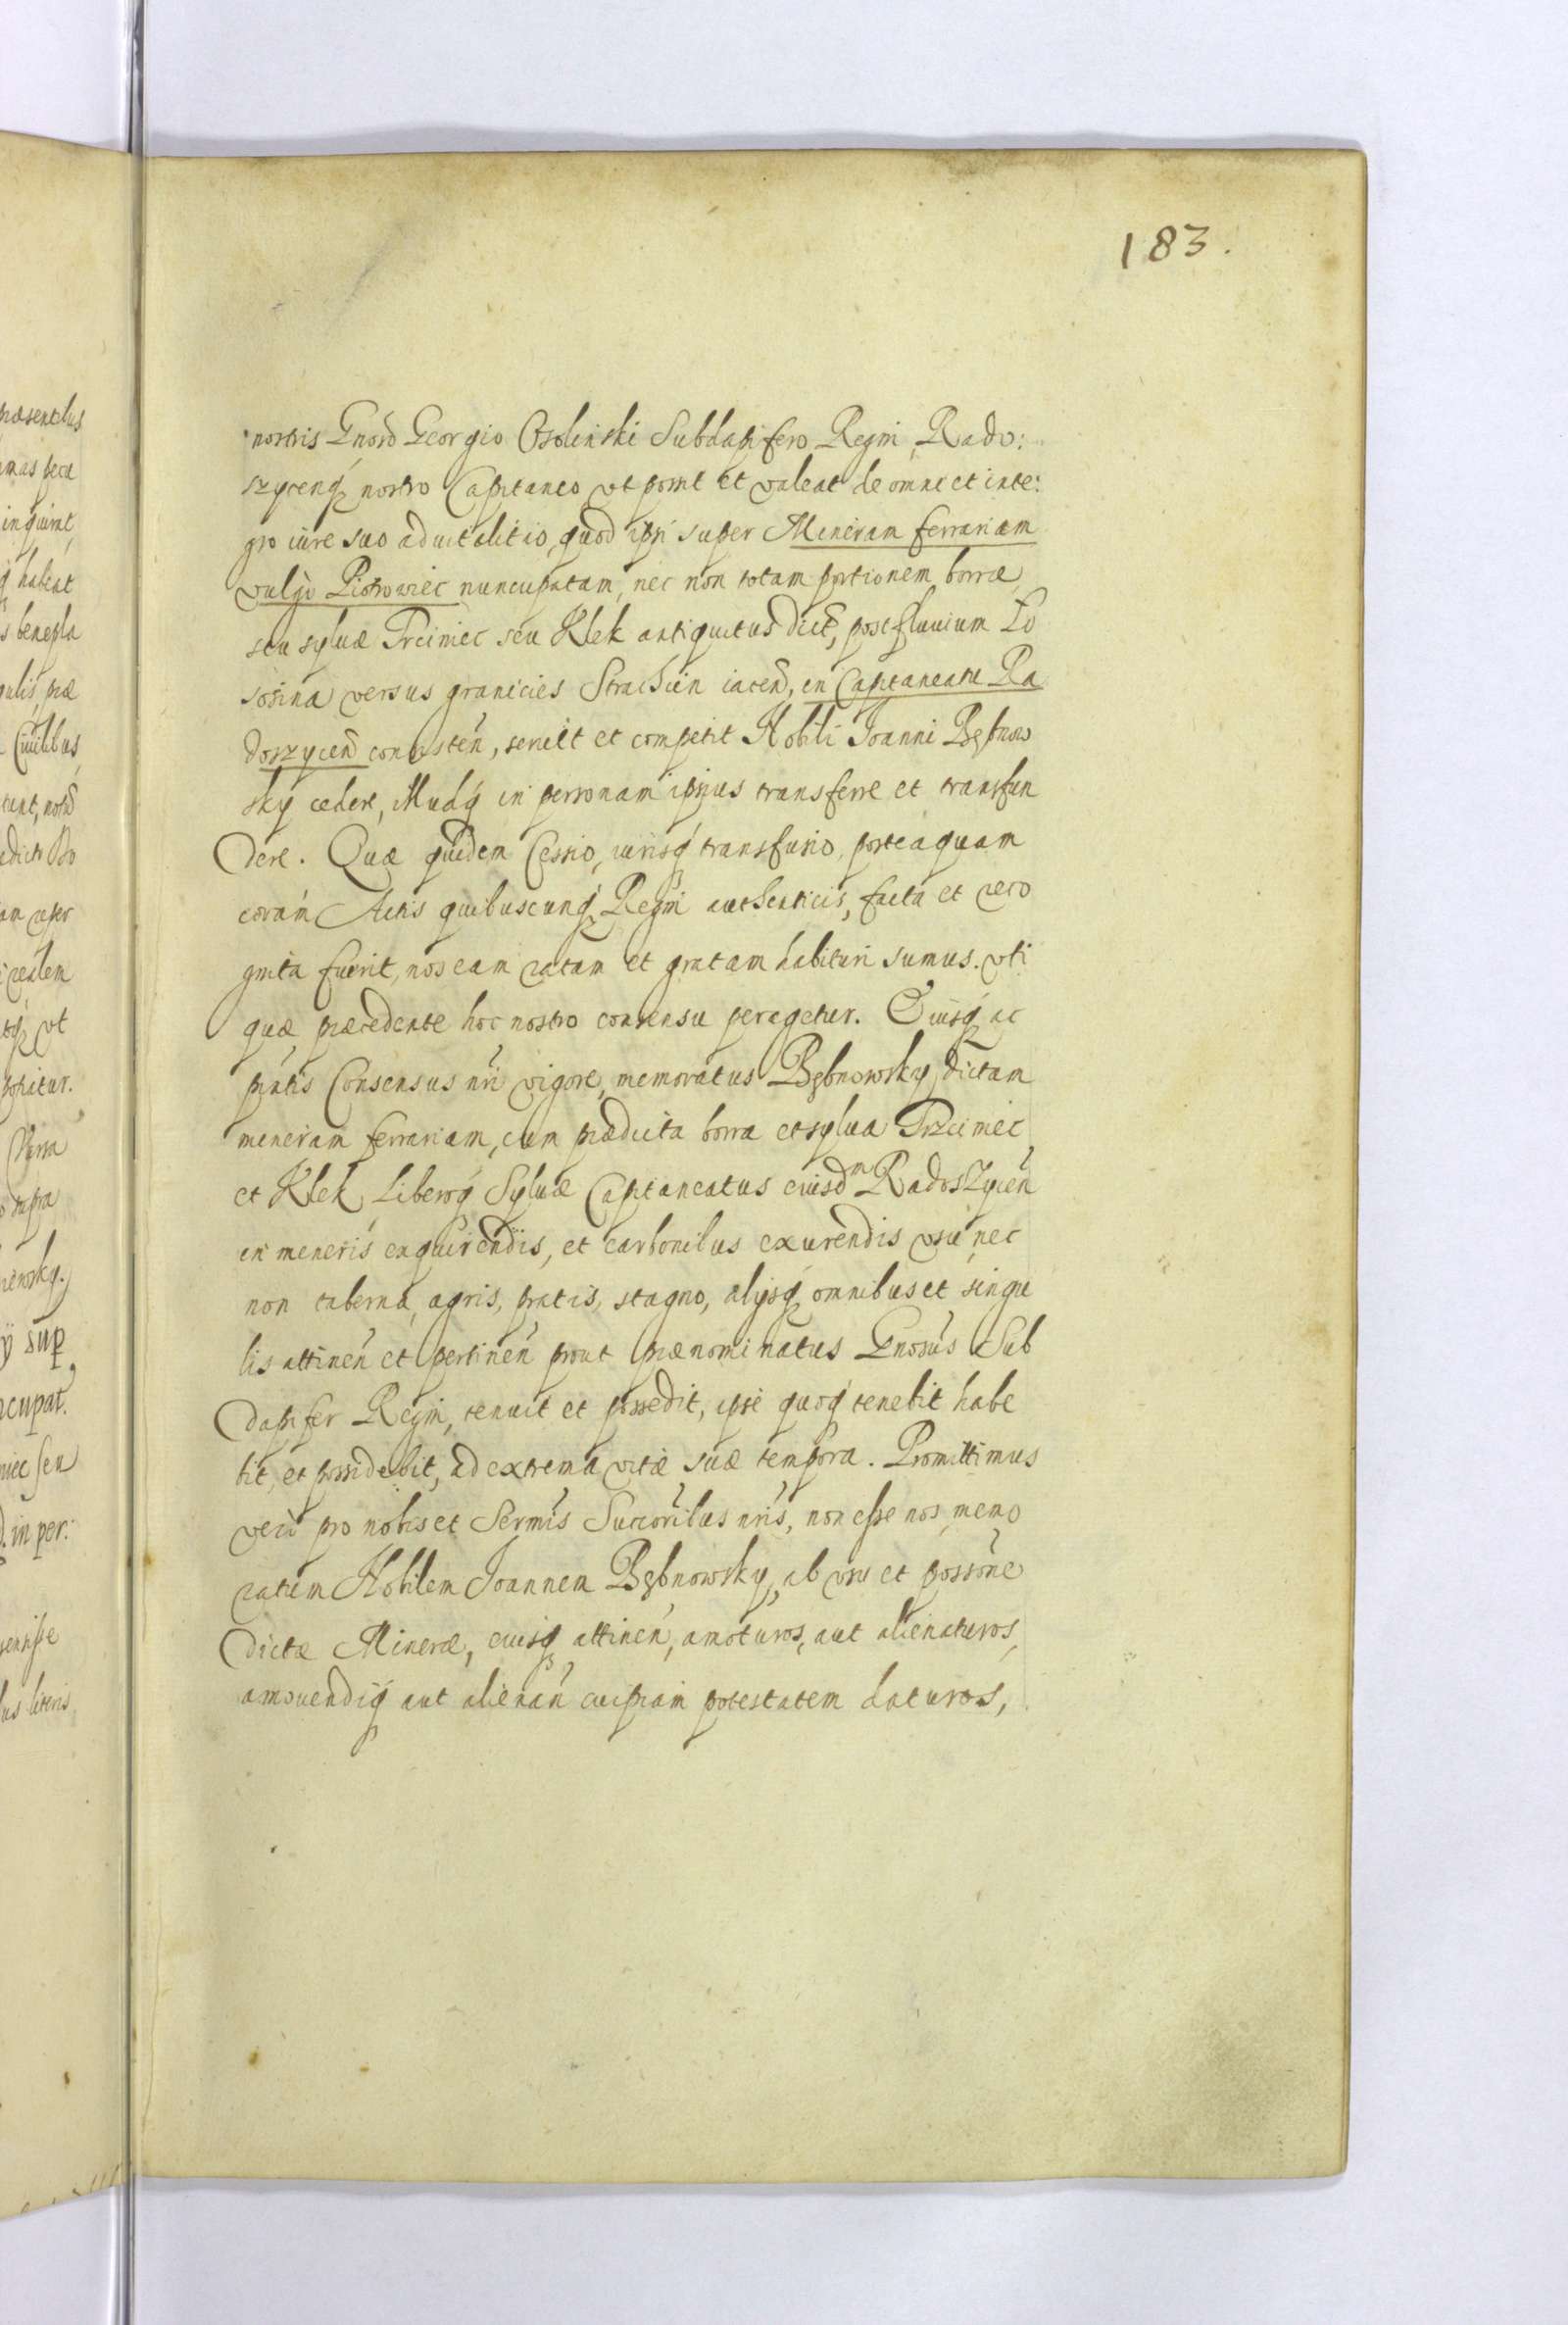 183.
nostris Gnoso Georgio Ossolinski Subdapifero Regni, Rado:
szycenq nostro Capitaneo vt possit et valeat de omni et inte:
gro iure suo aduitalitio, quod ipsi super Mineram ferrariam
vulgo Piotrowiec nuncupatam, nec non totam portionem borræ
seu syluæ Trcimiec seu Klek antiquitus dict, post fluuium Lo
sosina versus granicies Strachcin iacen, in Capitaneatu Ra
doszycen consisten, seruit et competit Nobili Joanni Bębnow
sky cedere, illudq in personam ipsius transferre et transfun
dere. Quæ quidem Cessio, iurisq transfusio, posteaquam
coram Actis quibuscunq Regni authenticis, facta et reco
gnita fuerit, nos eam ratam et gratam habituri sumus. vti
quæ præcedente hoc nostro consensu peragetur. Cuiusq ac
pñtis Consensus nri vigore, memoratus Bębnowsky, dictam
mineram ferrariam, cum prædicta borra et sylua Trzcimiec
et Klek, liberoq Syluæ Capitaneatus eiusdm Radoszycen
in mineris exquirendis, et carbonibus exurendis vsu, nec
non taberna, agris, pratis, stagno, alysq omnibus et singu
lis attinen et pertinen prout prænominatus Gnosus Sub
dapifer Regni, tenuit et possedit, ipse quoq tenebit habe
bit, et possidebit, ad extrema vitæ suæ tempora. Promittimus
vero pro nobis et Sermis Succoribus nris, non esse nos, memo
ratum Nobilem Joannem Bębnowsky, ab vsu et possone
dictæ Mineræ, eiusq attinen, amoturos, aut alienaturos,
amouendiq aut alienan cuipiam potestatem daturos,